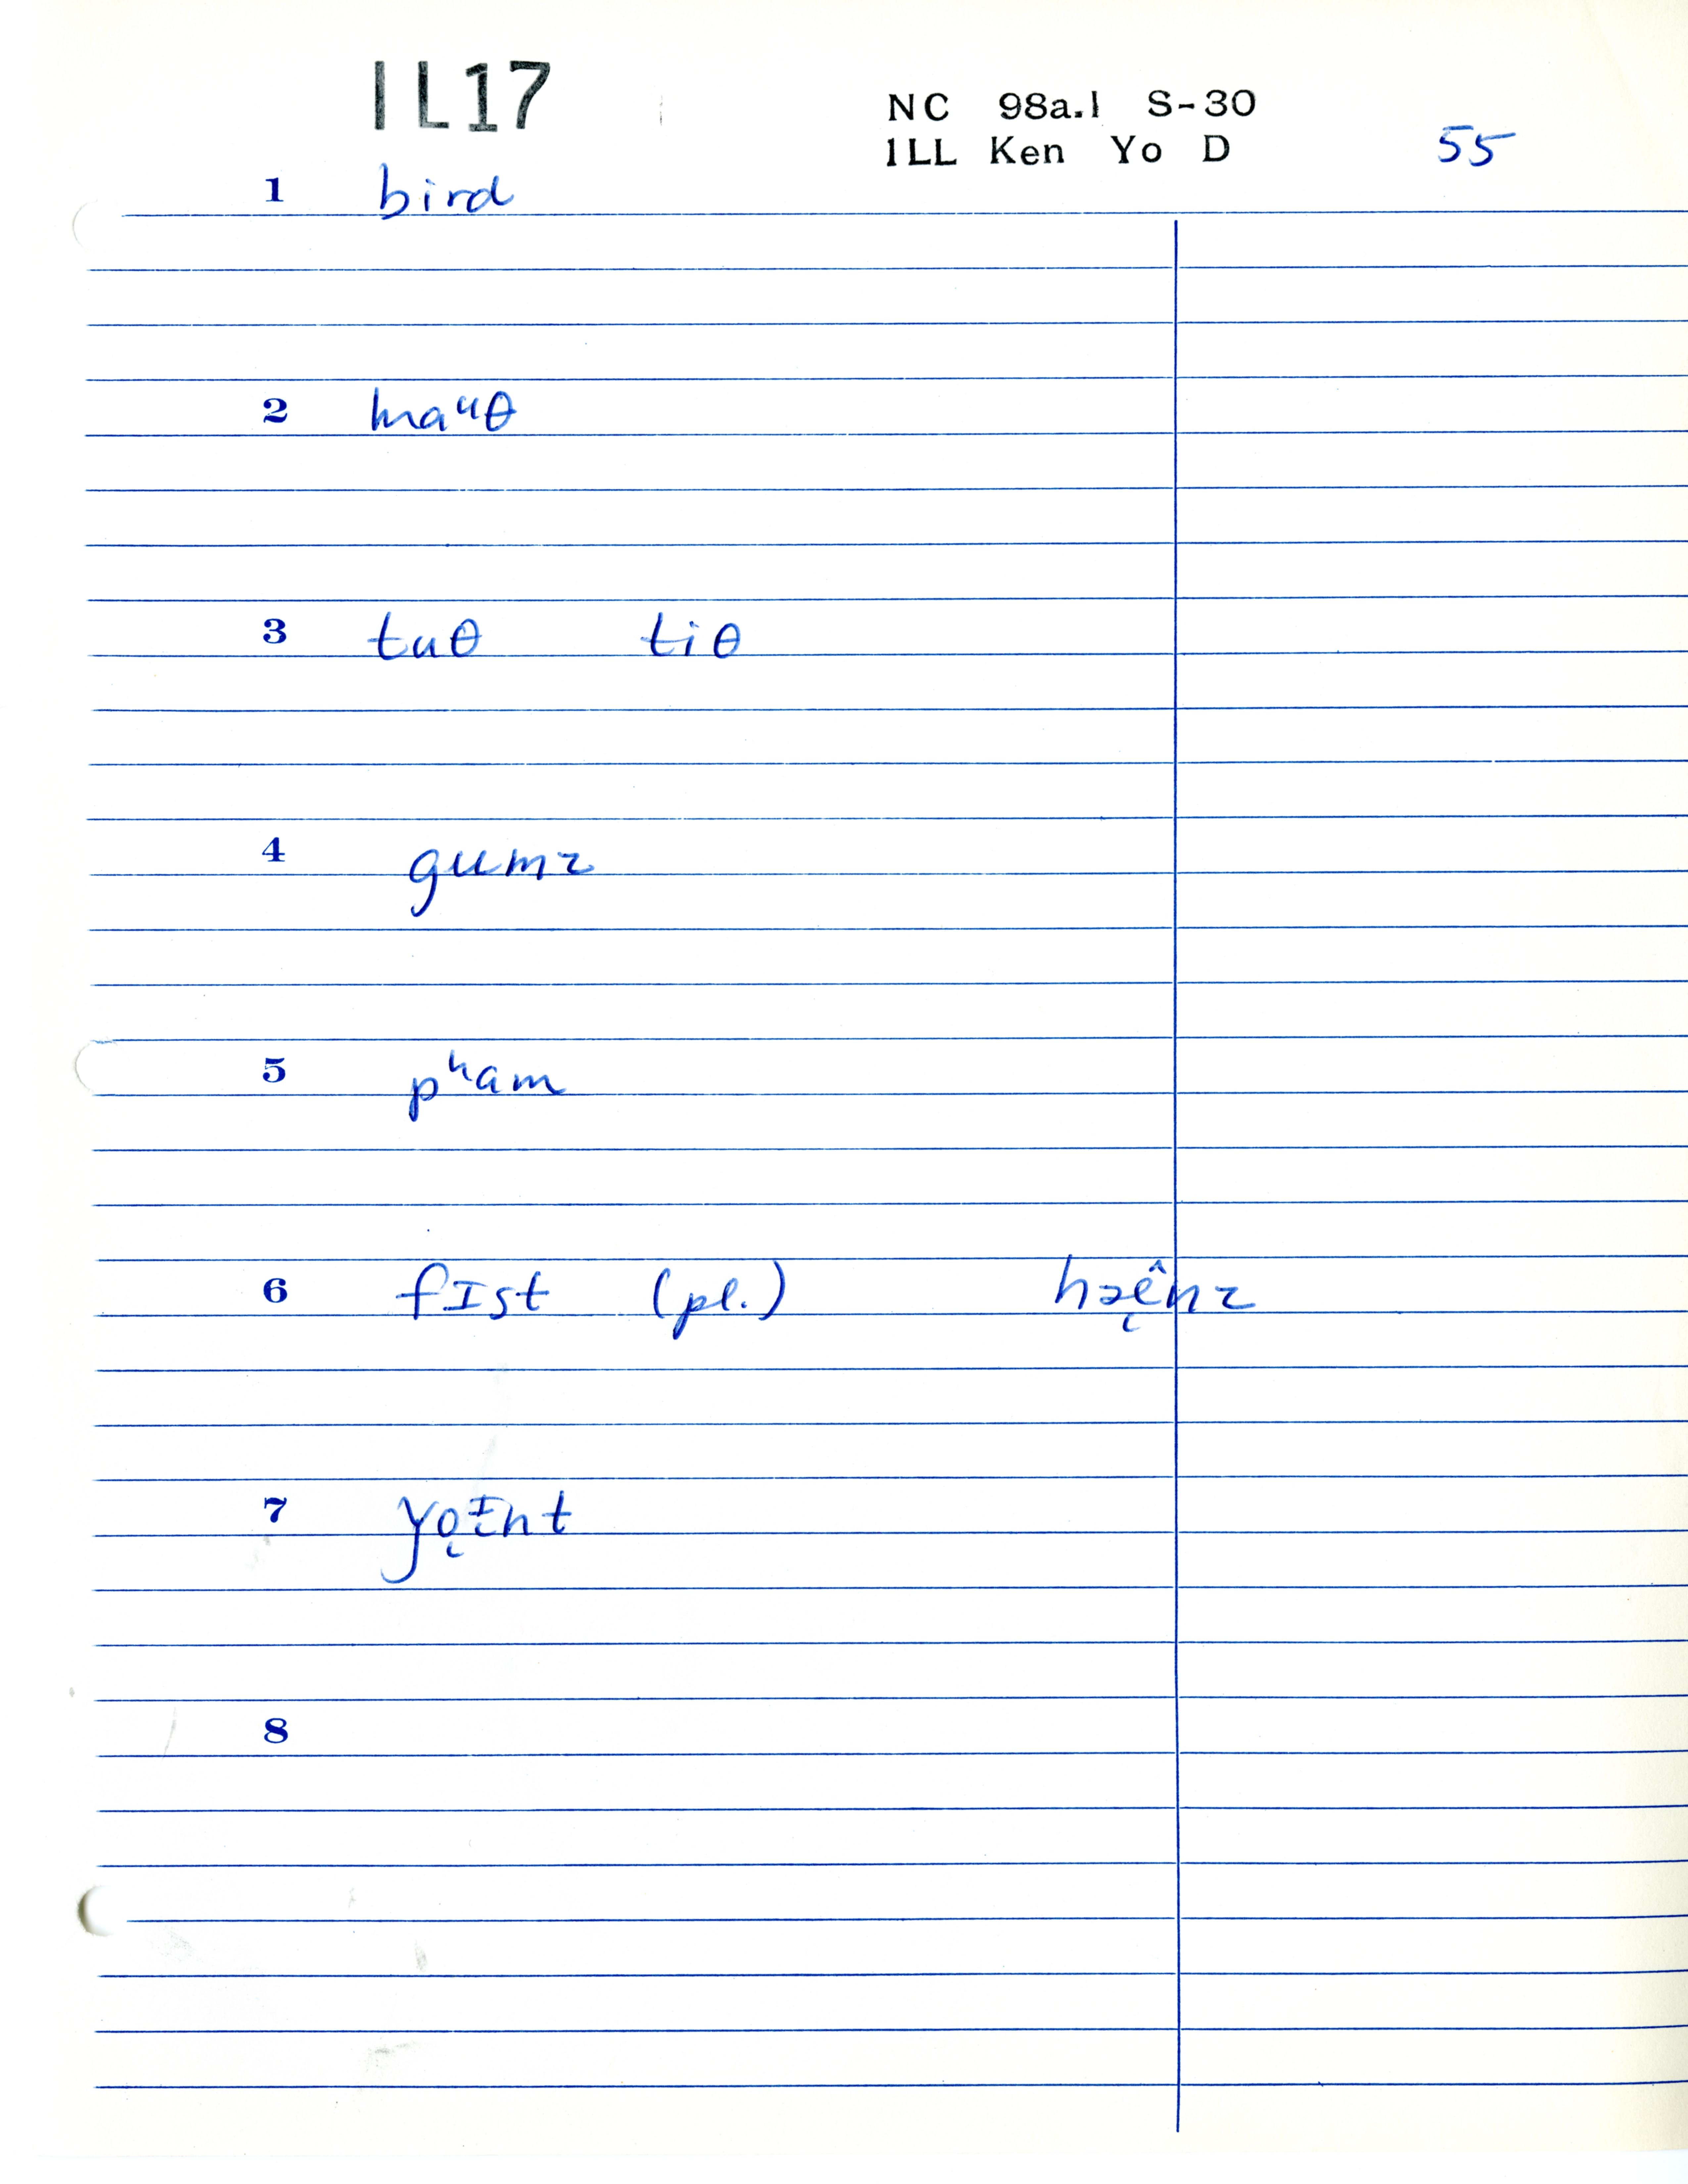 IL17
NC 98a.1 S-30
1LL Ken Yo D 55
1 bird
2 maᵘθ
3 tuθ tiθ
4 gumz
5 pʰam
6 fɪst (pl.) hæ̨ênz
7
8